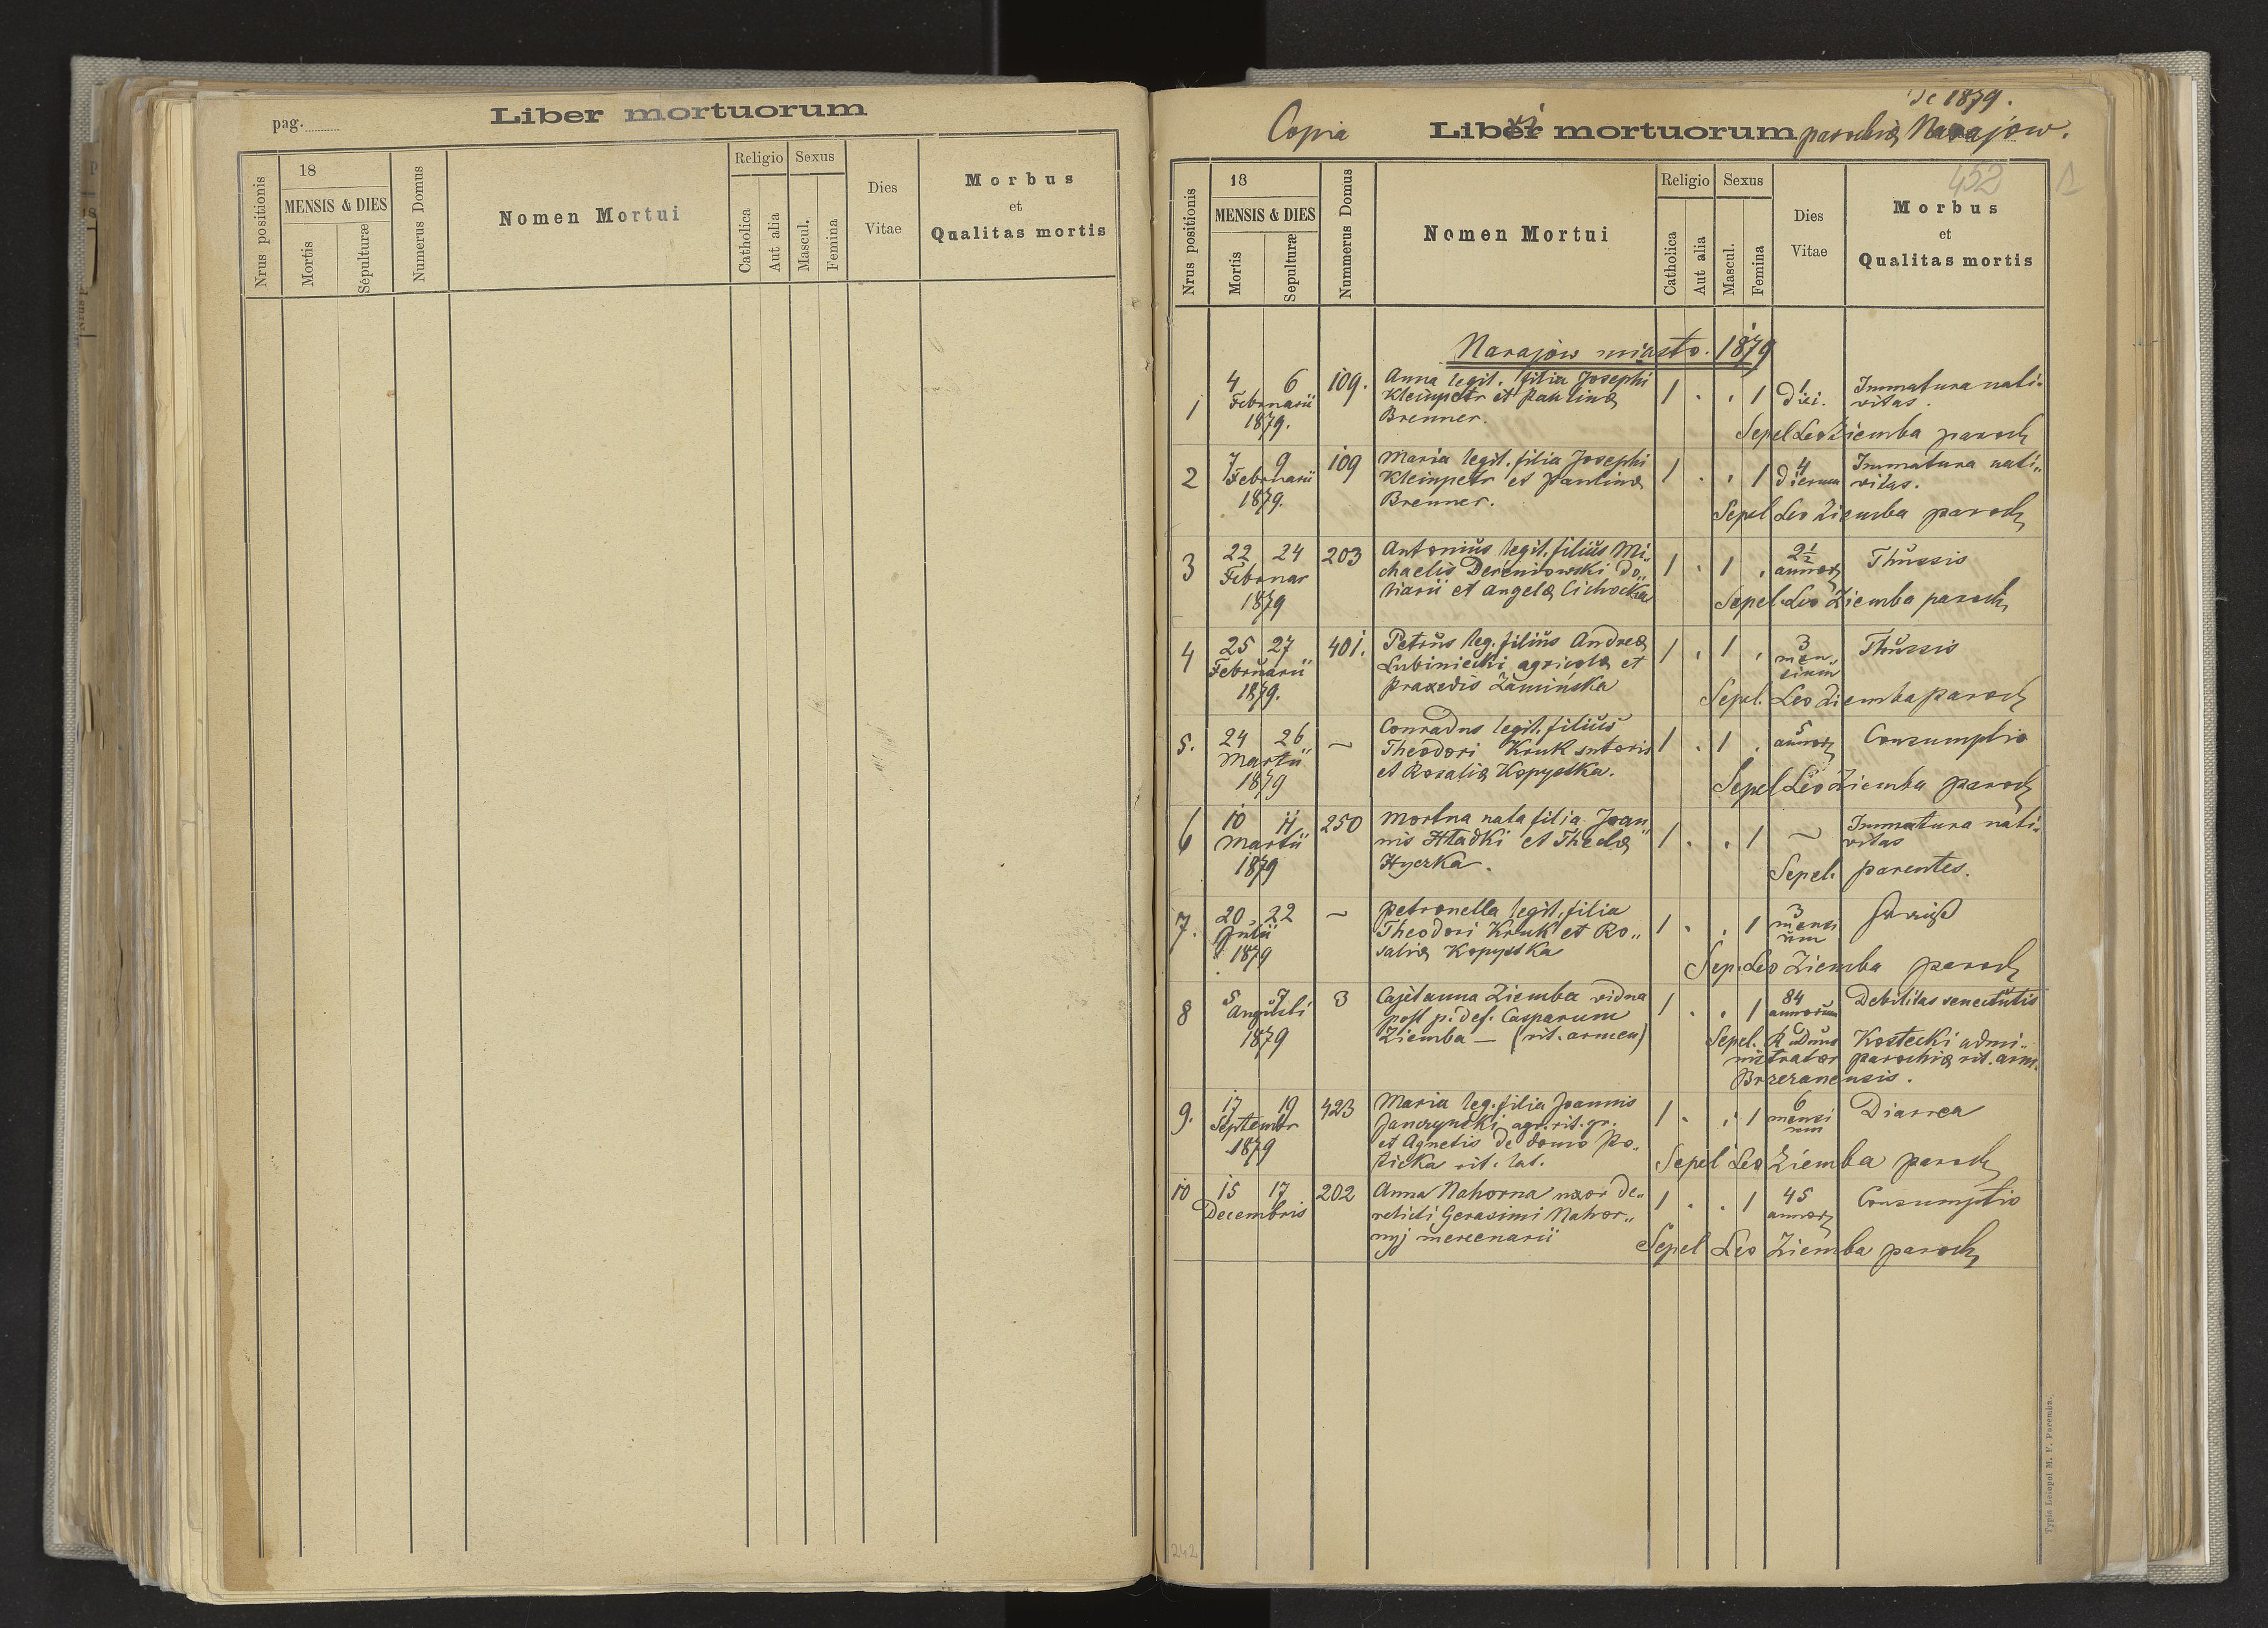 pag.
Liber mortuorum
Nrus positionis
18
MENSIS & DIES
Mortis
Sepulturæ
Numerus Domus
Nomen Mortui
Religio
Catholica
Aut alia
Sexus
Mascul.
Femina
Dies
Vitae
Morbus
et
Qualitas mortis
de 1879.
Copia Libri mortuorum parochiæ Narajow.
452
Nrus positionis
18
MENSIS & DIES
Mortis
Sepulturæ
Nummerus Domus
Nomen Mortui
Religio
Catholica
Aut alia
Sexus
Mascul.
Femina
Dies
Vitae
Morbus
et
Qualitas mortis
Narajow miasto. 1879
1 4 6 109. Anna legit. filia Josephi 1 . . 1 1 Immatura nati-
Februarii Kleinpetr et Paulinæ diei. vitas.
1879. Brenner.
Sepel Leo Ziemba paroch
2 7 9 109 Maria legit. filia Josephi 1 . . 1 4 Immatura nati„
Februarii Kleinpetr et Paulinæ dierum vitas.
1879. Brenner.
Sepel Leo Ziemba paroch
3 22 24 203 Antonius legit. filius Mi„ 1 . 1 . 2½ Thussis
Februar chaelis Dereniowski do„ annor
1879 liarii et Angelæ Cichocka
Sepel. Leo Ziemba paroch
4 25 27 401. Petrus leg. filius Andreæ 1 . 1 . 3 Thussis
Februarii Lubiniecki agricolæ et men„
1879. Praxedis Zamińska sium
Sepel. Leo Ziemba paroch
5. 24 26 ~ Conradus legit. filius 1 . 1 . 5 Consumptio
Martii Theodori Kruk sutoris annor
1879 et Rosaliæ Kopystka.
Sepel Leo Ziemba paroch
6 10 11 250 Mortua nata filia Joan„ 1 . . 1 ~ Immatura nati„
Martii nis Hładki et Theclæ vitas
1879 Hyczka.
Sepel. parentes.
7. 20 22 ~ Petronella legit. filia 1 . . 1 3
Julii Theodori Kruk et Ro„ mensi
1879 saliæ Kopystka um
Sep. Leo Ziemba paroch
8 5 7 3 Cajetanna Ziemba vidua 1 . . 1 84 Debilitas senectutis
Augusti post p. def. Casparum annorum
1879 Ziemba — (rit. armen)
Sepel. Rudus Kostecki admi„
nistrator parochiæ rit. arm.
Brzezanensis.
9. 17 19 423 Maria leg. filia Joannis 1 . . 1 6 Diarrea
Septembr Janczyński agr. rit. gr. mensi
1879 et Agnetis de domo Po„ um
ticka rit. lat.
Sepel Leo Ziemba paroch
10 15 17 202 Anna Nahorna uxor de„ 1 . . 1 45 Consumptio
Decembris relicti Gerasimi Nahor„ annor
nyj mercenarii
Sepel Leo Ziemba paroch
242
Typis Leiopol M. F. Poremba.